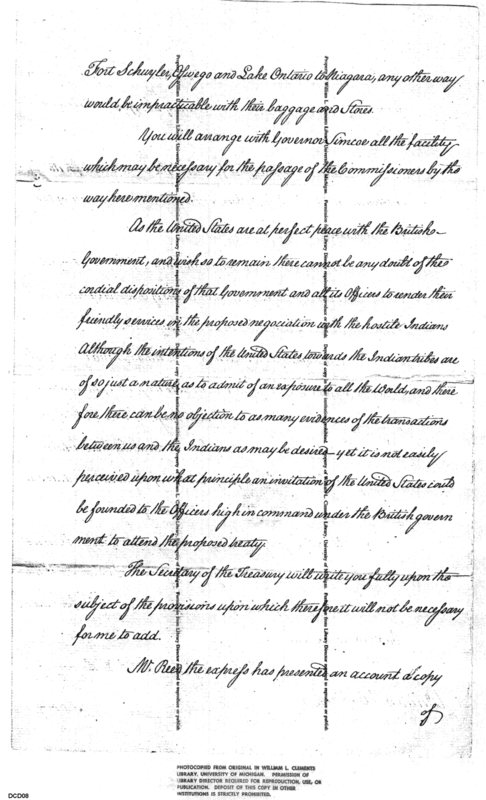 Fort Schuyler, Oswego and Lake Ontario to Niagara, any other way
would be impracticable with their baggage and Stores.
You will arrange with Governor Simcoe all the facility
which may be necessary for the passage of the Commissioners by the
way here mentioned.
As the United States are at perfect peace with the British
Government, and wish so to remain there cannot be any doubt of the
cordial dispositions of that Government and all its Officers to render their
friendly services in the proposed negociation with the hostile Indians
Although the intentions of the United States towards the Indian tribes are
of so just a nature, as to admit of an exposure to all the World, and there
fore there can be no objection to as many evidences of the transactions
between us and the Indians as may be desired – yet it is not easily
perceived upon what principle an invitation of the United States could
be founded to the Officers high in command under the British govern
ment to attend the proposed treaty.
The Secretary of the Treasury will write you fully upon the
subject of the provisions upon which therefore it will not be necessary
for me to add.
Mr. Reed the express has presented an account a copy
of
PHOTOCOPIED FROM ORIGINAL IN WILLIAM L. CLEMENTS
LIBRARY, UNIVERSITY OF MICHIGAN. PERMISSION OF
LIBRARY DIRECTOR REQUIRED FOR REPRODUCTION, USE, OR
PUBLICATION. DEPOSIT OF THIS COPY IN OTHER
INSTITUTIONS IS STRICTLY PROHIBITED.
DCD08